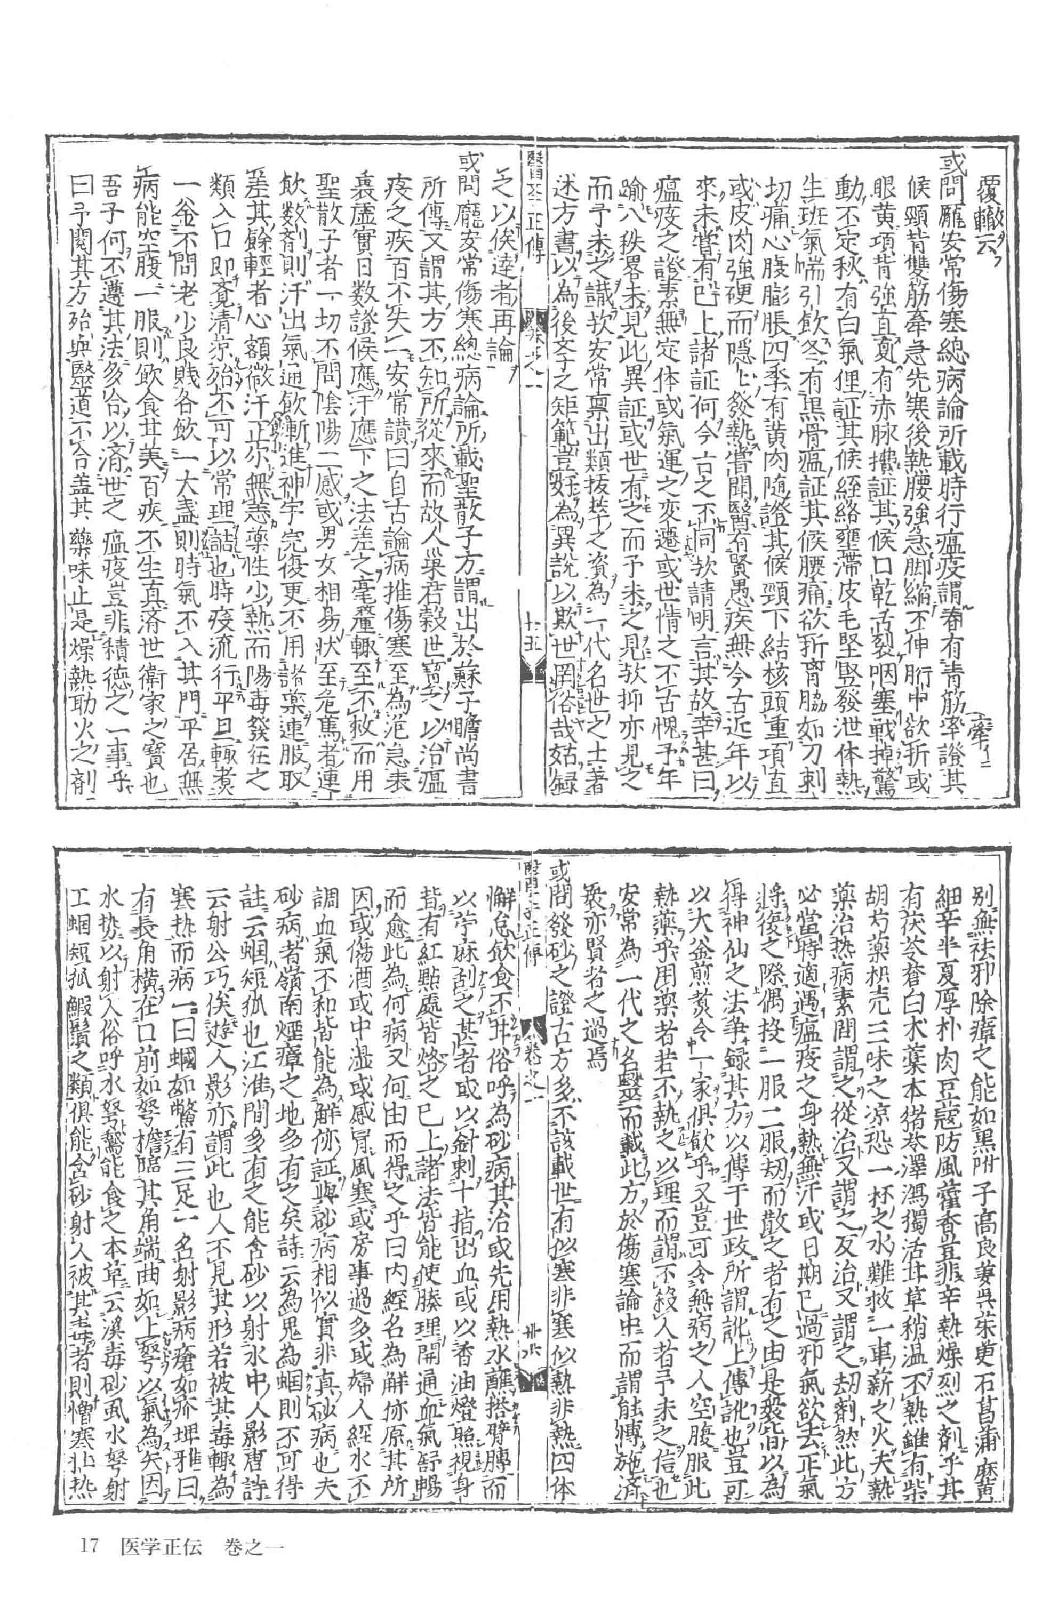 覆轍云
或問龐安常傷寒總病論所載時行瘟疫謂春有青筋牽證其
候頸背雙筋牽急先寒後熱腰強急脚縮不伸胻中欲折或
眼黄項背強直夏有赤脉攢証其候口乾舌裂咽塞戰掉驚
動不定秋有白氣狸証其候経絡壅滯皮毛堅竪發泄体熱
生班氣喘引飲冬有黒骨瘟証其候腰痛欲折胷脇如刀刺
切痛心腹膨脹四季有黄肉随證其候頸下結核頭重項直
或皮肉強硬而隱上發熱嘗聞醫有賢愚疾無今古近年以
來未嘗有已上諸証何今古之不同欤請明言其故幸甚曰
瘟疫之證素無定体或氣運之变遷或世情之不古愧予年
踰八秩畧未見此異証或世有之而予未之見欤抑亦見之
而予未之識欤安常禀出類抜萃之資為一代名世之士著
述方書以為後學之矩範豈好為異説以欺世罔俗哉姑録
醫孝正傳 卷之一 十五
之以俟達者再論
或問龐安常傷寒總病論所載聖散子方謂出於蘇子瞻尚書
所傳又謂其方不知所從來而故人巣君穀世寳之以治瘟
疫之疾百不失一安常讃曰自古論病推傷寒至為危急表
裏虚實日数證候應汗應下之法差之毫釐輙至不救而用
聖散子者一切不問陰陽二感或男女相易状至危篤者連
飲数剤則汗出氣通飲漸進神宇完復更不用諸薬連服取
差其餘輕者心額微汗正尓無恙薬性少熱而陽毒發狂之
類入口即覚清凉殆不可以常理詰也時疫流行平旦輙煮
一釜不問老少良賎各飲一大盞則時氣不入其門平居無
病能空腹一服則飲食甘美百疾不生真済世衛家之寳也
吾子何不遵其法多合以済世之瘟疫豈非積德之一事乎
曰予閲其方殆與醫道不合盖其薬味止是燥熱助火之剤
別無祛邪除瘴之能如黒附子高良姜呉茱萸石菖蒲麻黄
細辛半夏厚朴肉豆蔻防風藿香豈非辛熱燥烈之剤乎其
有茯苓蒼白朮藁本猪苓澤瀉獨活甘草稍温不熱雖有柴
胡芍薬枳壳三味之凉恐一杯之水難救一車薪之火夫熱
薬治熱病素問謂之從治又謂之反治又謂之刧剤然此方
必當時適遇瘟疫之身熱無汗或日期已過邪氣欲去正氣
將復之際偶投一服二服刧而散之者有之由是衆皆以為
得神仙之法争録其方以傳于世政所謂訛上傳訛也豈可
以大釜煎煑令一家俱飲乎又豈可令無病之人空腹服此
熱薬乎用薬者若不熱之以理而謂不殺人者予未之信也
安常為一代之名醫而載此方於傷寒論中而謂能愽施済
衆亦賢者之過焉
或問發砂之證古方多不該載世有似寒非寒似熱非熱四体
醫孝正傳 卷之一 廿六
懈怠飲食不甘俗呼為砂病其治或先用熱水蘸搭臂膊而
以苧麻刮之甚者或以針刺十指出血或以香油燈照視身
背有紅點處皆烙之已上諸法皆能使腠理開通血氣舒暢
而愈此為何病又何由而得之乎曰内經名為解㑊原其所
因或傷酒或中濕或感冒風寒或房事過多或婦人經水不
調血氣不和皆能為解㑊証與砂病相似實非真砂病也夫
砂病者嶺南煙瘴之地多有之矣詩云為鬼為蜮則不可得
註云蜮短狐也江淮間多有之能含砂以射水中人影詩
云射公巧俟遊人影亦謂此也人不見其形若被其毒輙為
寒热而病一曰蜮如鱉有三足一名射影病瘡如疥埤雅曰
有長角横在口前如弩檐臨其角端曲如上弩以氣為矢因
水势以射人俗呼水弩鵞能食之本草云溪毒砂虱水弩射
工蜮短狐鰕鬚之類俱能含砂射人被其毒者則憎寒壮热
17 医学正伝 巻之一